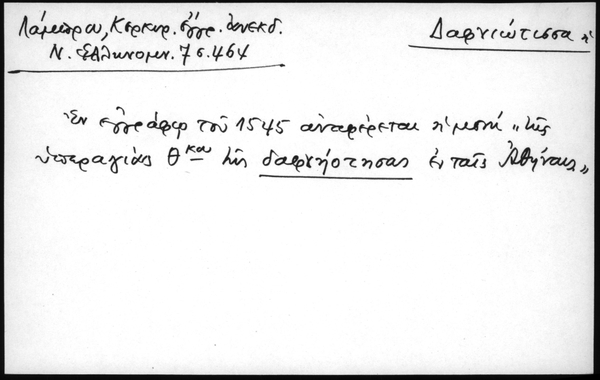 Λάμπρου, Κερκυρ. ἔγγρ. ἀνεκδ.
Ν. Ἑλληνομν. 7 σ. 464
Δαφνιώτισσα ἡ
Ἐν ἐγγράφῳ τοῦ 1545 ἀναφέρεται ἡ μονή „τῆς
ὑπεραγίας Θκου τῆς δαφνηότησας ἐν ταῖς Ἀθήναις„